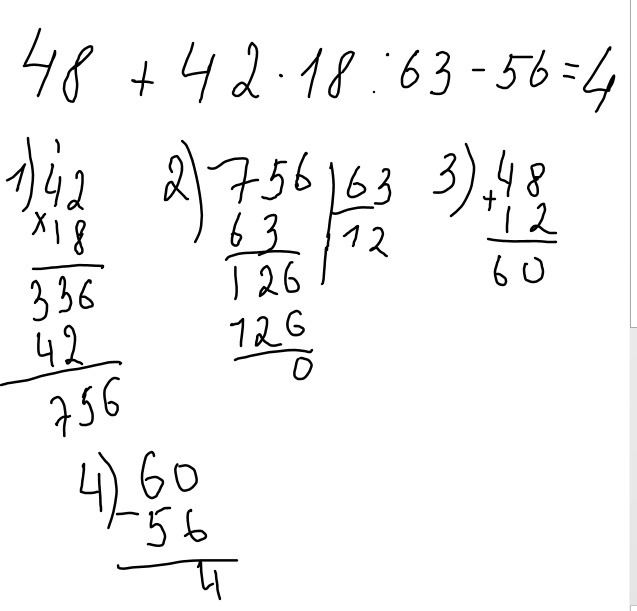 48 + 42 · 18 : 63 - 56 = 4
1) 42
× 18
336
42
756
2) 756 | 63
63 | 12
126
126
0
3) 48
+ 12
60
4) 60
- 56
4